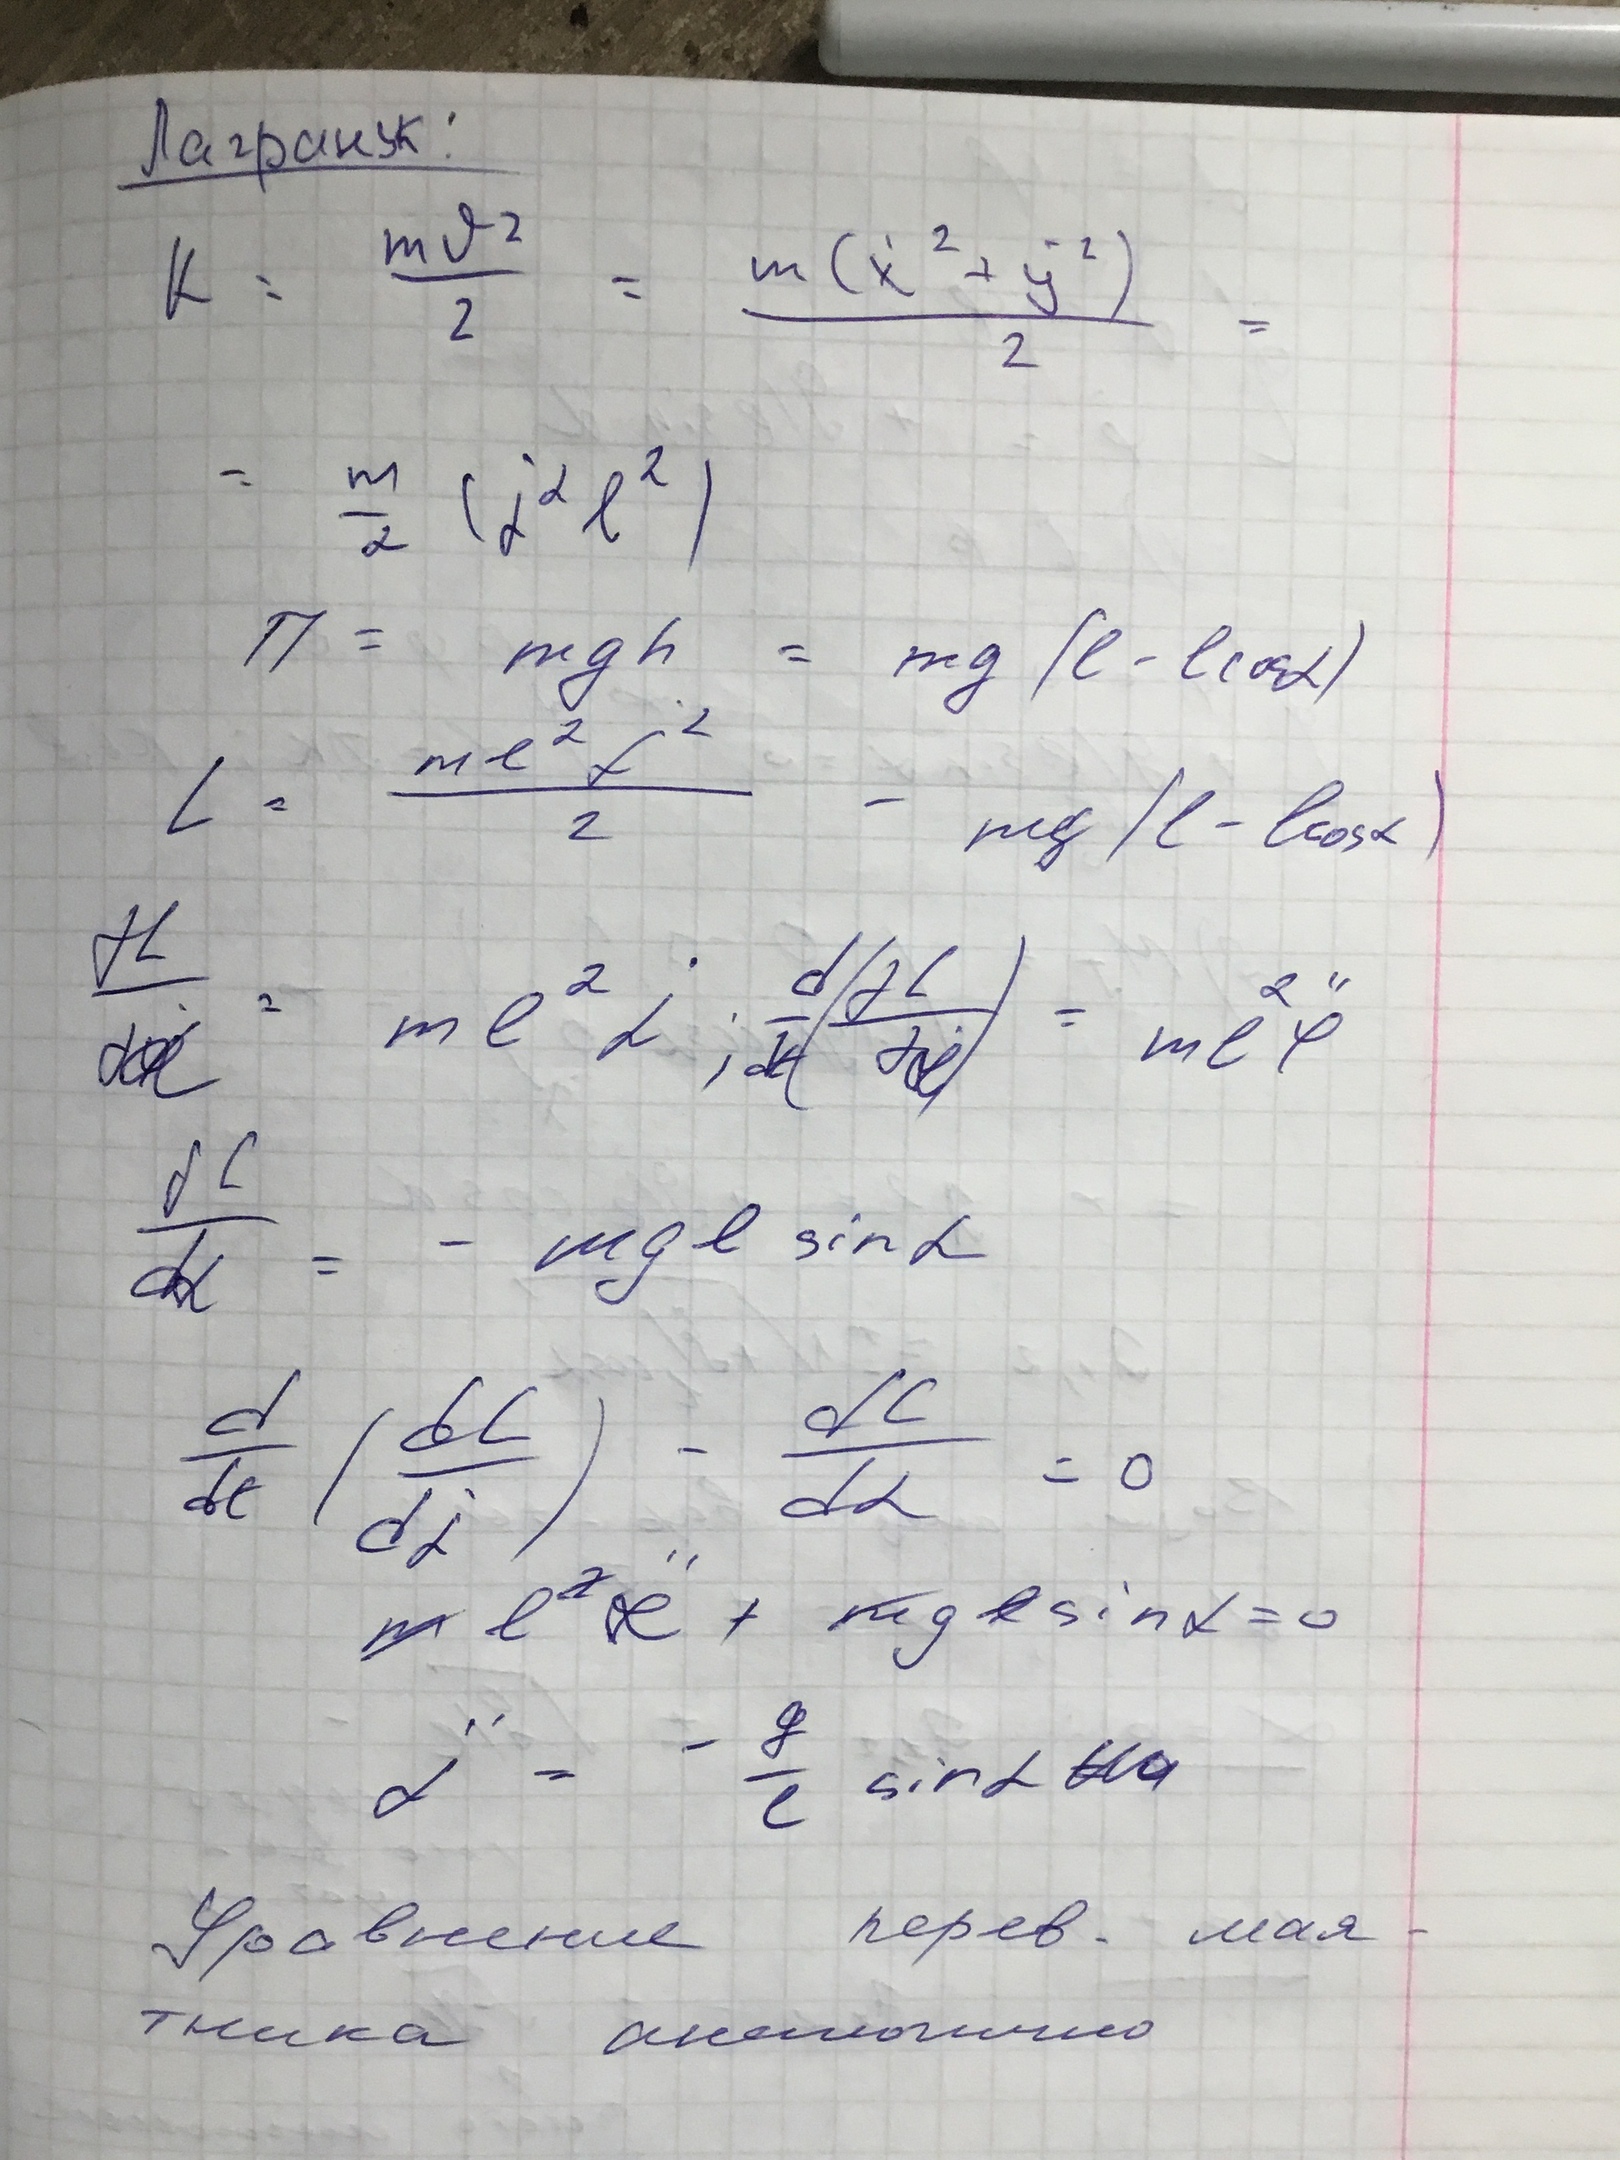 Лагранж:
K = mv²/2 = m(ẋ² + ẏ²)/2 =
= m/2 (α̇² l²)
П = mgh = mg(l - lcosα)
L = ml²α̇²/2 - mg(l - lcosα)
dL/dα̇ = ml²α̇ ; d/dt(dL/dα̇) = ml²φ̈
dL/dα = - mgl sinα
d/dt (dL/dα̇) - dL/dα = 0
ml²α̈ + mgl sinα = 0
α̈ = - g/l sinα
Уравнение перев. мая-
тника аналогично